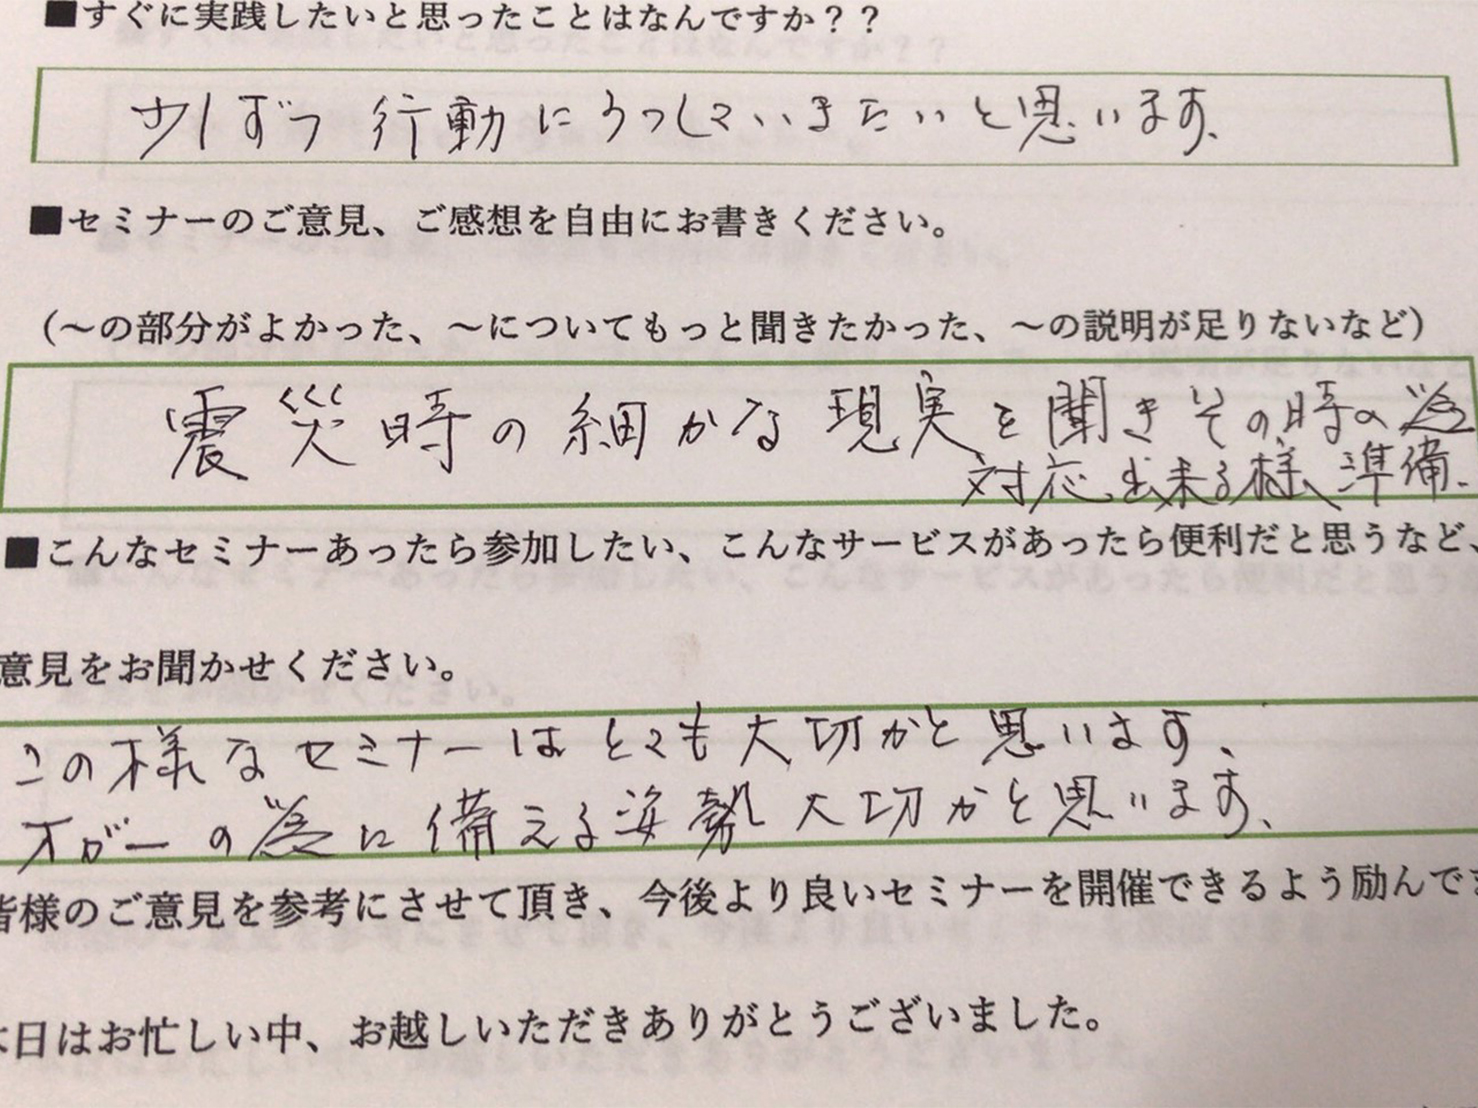 ■すぐに実践したいと思ったことはなんですか？？
少しずつ 行動にうつしていきたいと思います、
■セミナーのご意見、ご感想を自由にお書きください。
（～の部分がよかった、～についてもっと聞きたかった、～の説明が足りないなど）
震災時の細かな現実を聞きその時の為
対応出来る様、準備、
■こんなセミナーあったら参加したい、こんなサービスがあったら便利だと思うなど、
意見をお聞かせください。
この様なセミナーはとても大切かと思います、
万が一の為に備える姿勢大切かと思います、
皆様のご意見を参考にさせて頂き、今後より良いセミナーを開催できるよう励んで
本日はお忙しい中、お越しいただきありがとうございました。